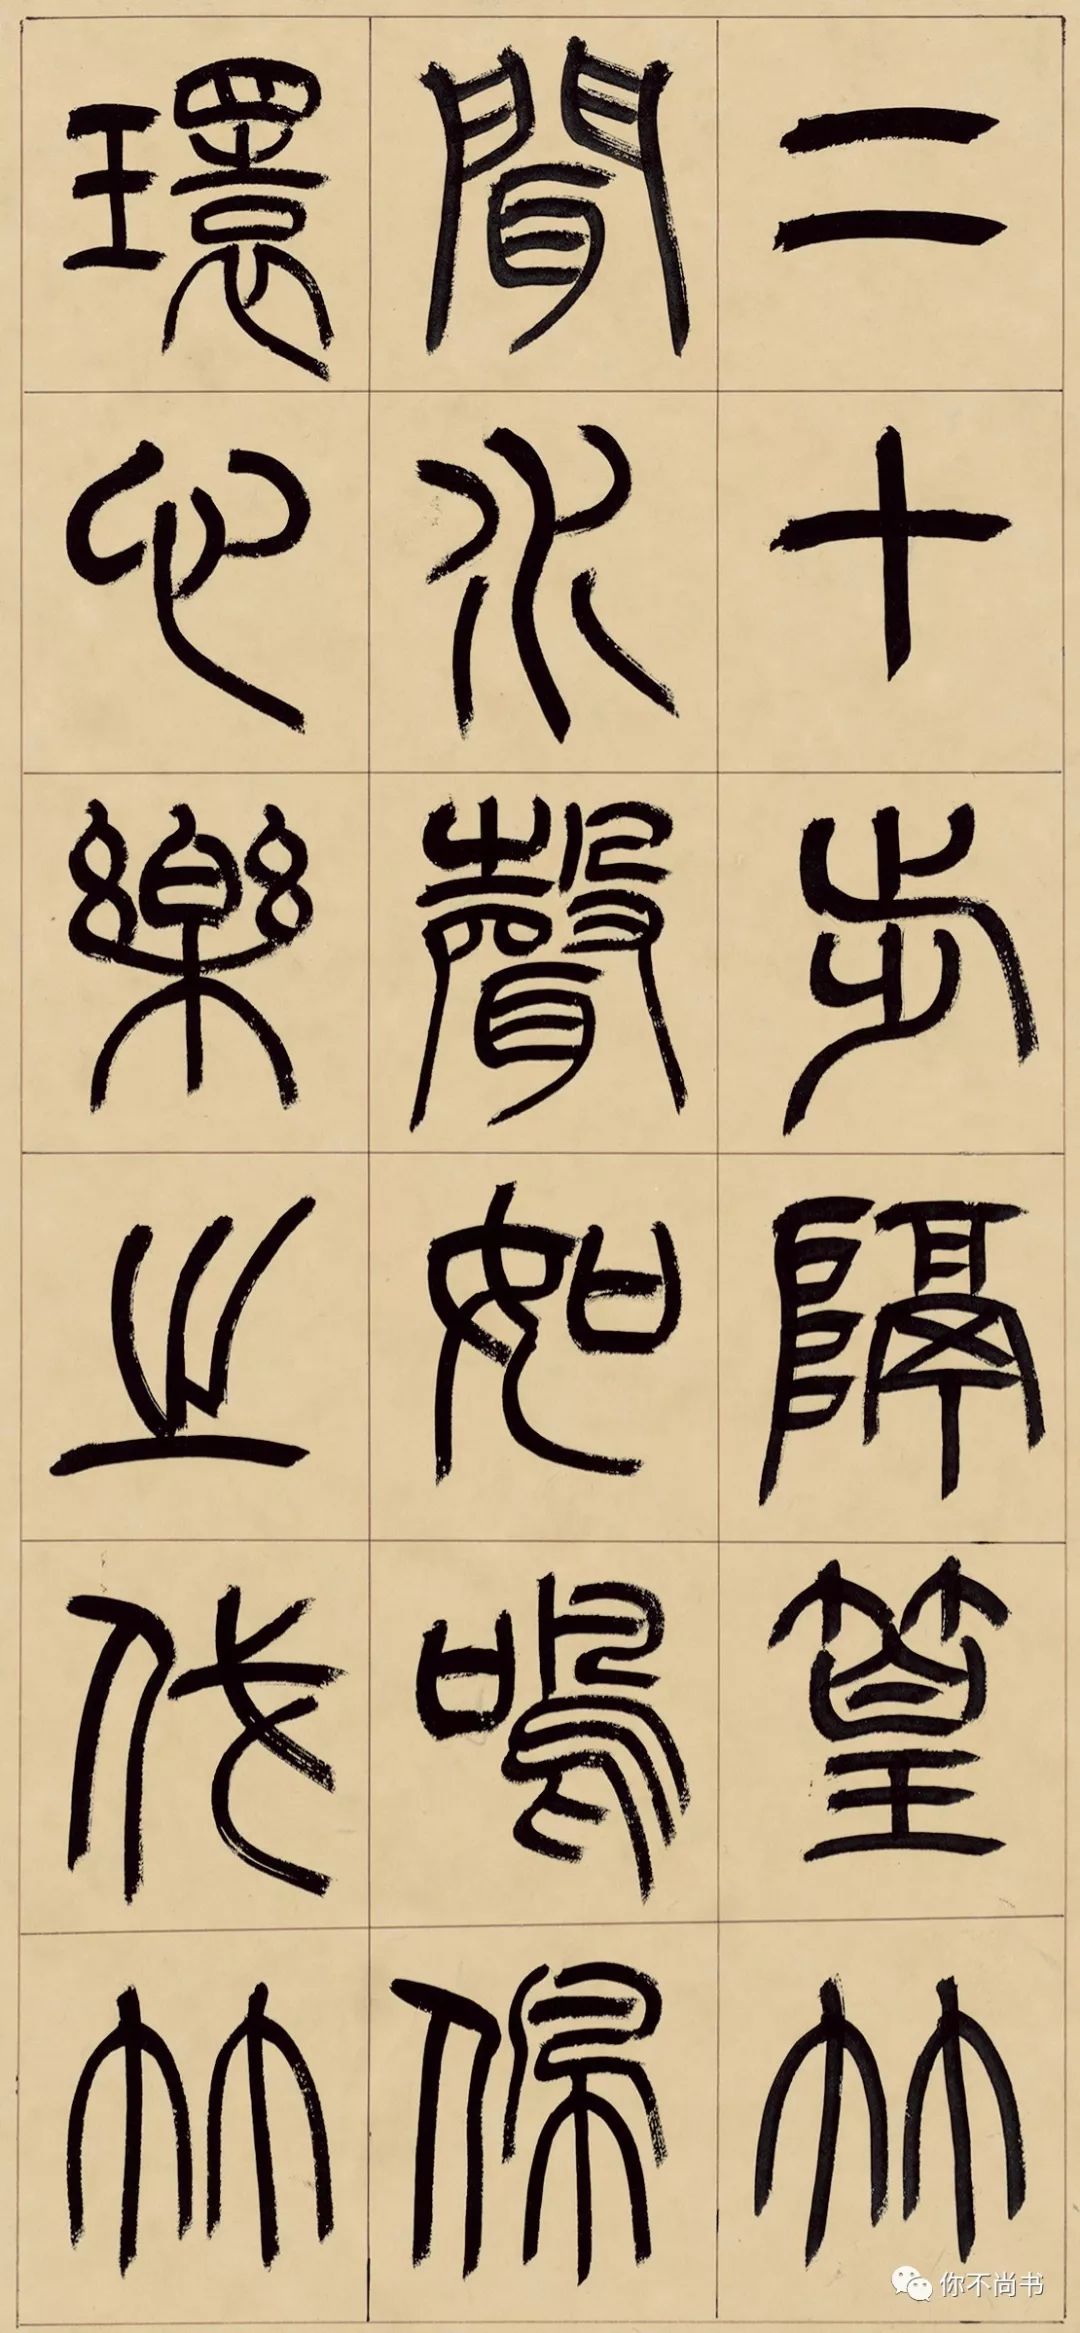 二十步隔篁竹
聞水聲如鳴佩
環心樂之伐竹
你不尚书